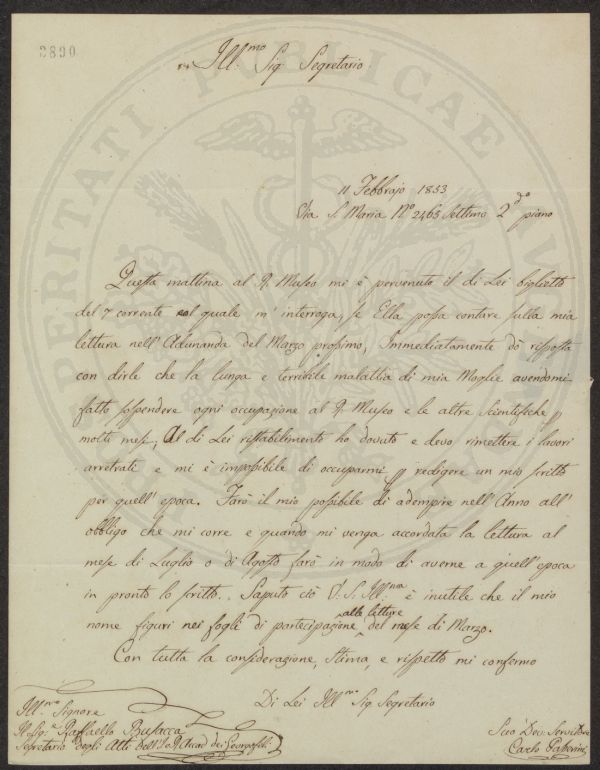 2890
Ill.mo Sig Segretario
11 Febbrajo 1853
Via S. Maria No 2465 Settimo 2do piano
Questa mattina al R. Museo mi è pervenuto il di Lei biglietto
del 7 corrente col quale m' interroga, se Ella possa contare sulla mia
lettura nell' Adunanza del Marzo prossimo, Immediatamente dò risposta
con dirle che la lunga e terribile malattia di mia Moglie avendomi
fatto sospendere ogni occupazione al R. Museo e le altre scientifiche p
molti mesi, Al di Lei ristabilimento ho dovuto e devo rimettere i lavori
arretrati e mi è impossibile di occuparmi p redigere un mio scritto
per quell' epoca. Farò il mio possibile di adempire nell' Anno all'
obbligo che mi corre e quando mi venga accordata la lettura al
mese di Luglio o di Agosto farò in modo di averne a quell' epoca
in pronto lo scritto. Saputo ciò V. S. Ill.ma è inutile che il mio
nome figuri nei fogli di partecipazione alle letture del mese di Marzo.
Con tutta la considerazione, Stima, e rispetto mi confermo
Di Lei Ill.mo Sig. Segretario
Ill.mo Signore
Il Sig.e Raffaello Busacca
Segretario degli Atti dell' I. e R. Accad dei Georgofili
Suo Dev. Servitore
Carlo Passerini
PROSPERITATI PUBLICAE AUGENDAE